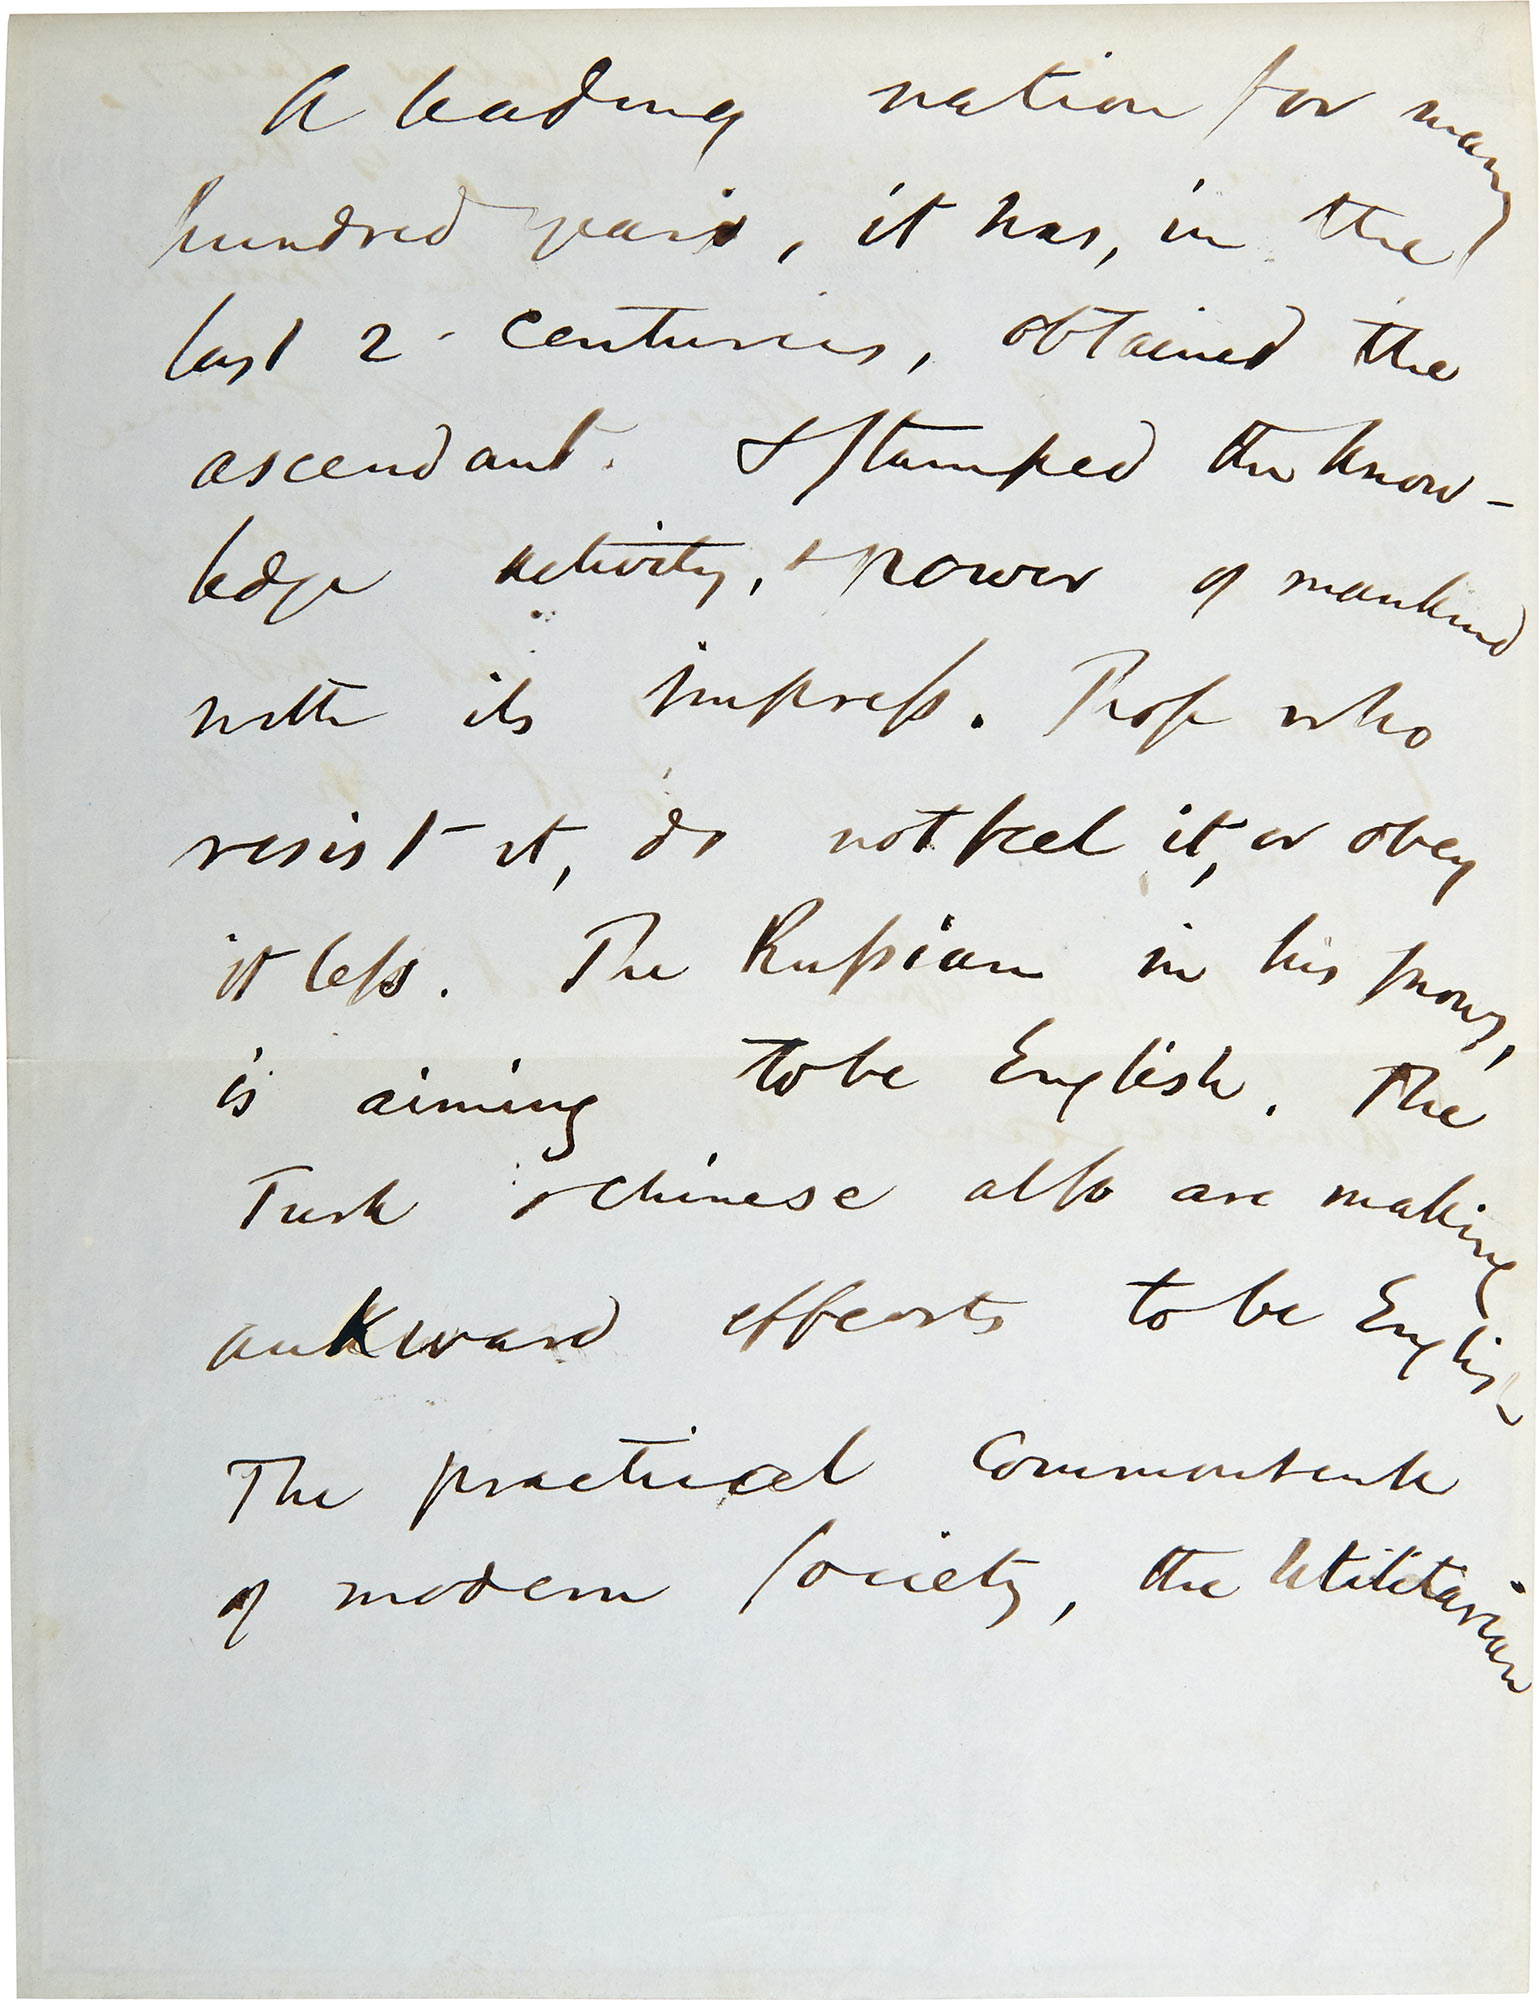 A leading nation for many
hundred years, it has, in the
last 2 centuries, obtained the
ascendant. & stamped the know-
ledge activity, & power of mankind
with its impress. Those who
resist it, do not feel it, or obey
it less. The Russian in his snows,
is aiming to be English. The
Turk & Chinese also are making
awkward efforts to be English
The practical Commonsense
of modern Society, the Utilitarian